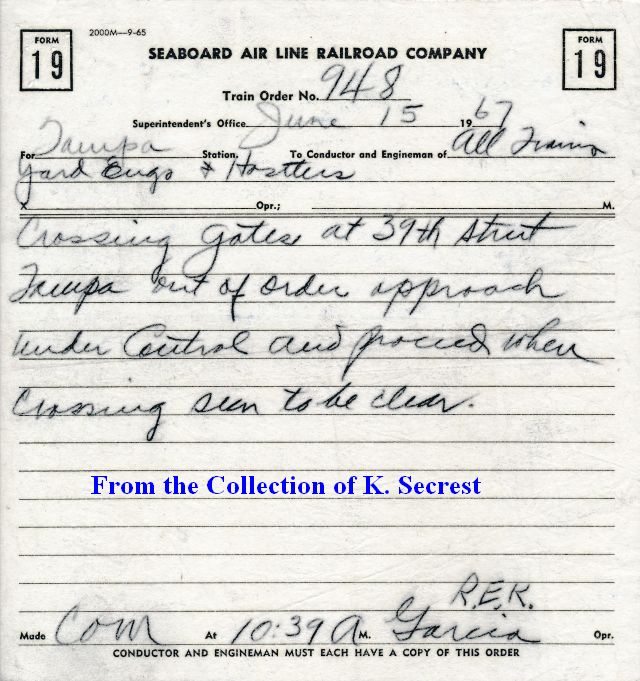 FORM 19
2000M—9-65
SEABOARD AIR LINE RAILROAD COMPANY
FORM 19
Train Order No. 948
Superintendent's Office June 15 1967
For Tampa Station. To Conductor and Engineman of All Trains
Yard Engs & Hostlers
X Opr.; M.
Crossing gates at 39th Street
Tampa out of order approach
under Control and proceed when
Crossing seen to be clear.
From the Collection of K. Secrest
R.E.K.
Made Com At 10:39 A M. Garcia Opr.
CONDUCTOR AND ENGINEMAN MUST EACH HAVE A COPY OF THIS ORDER